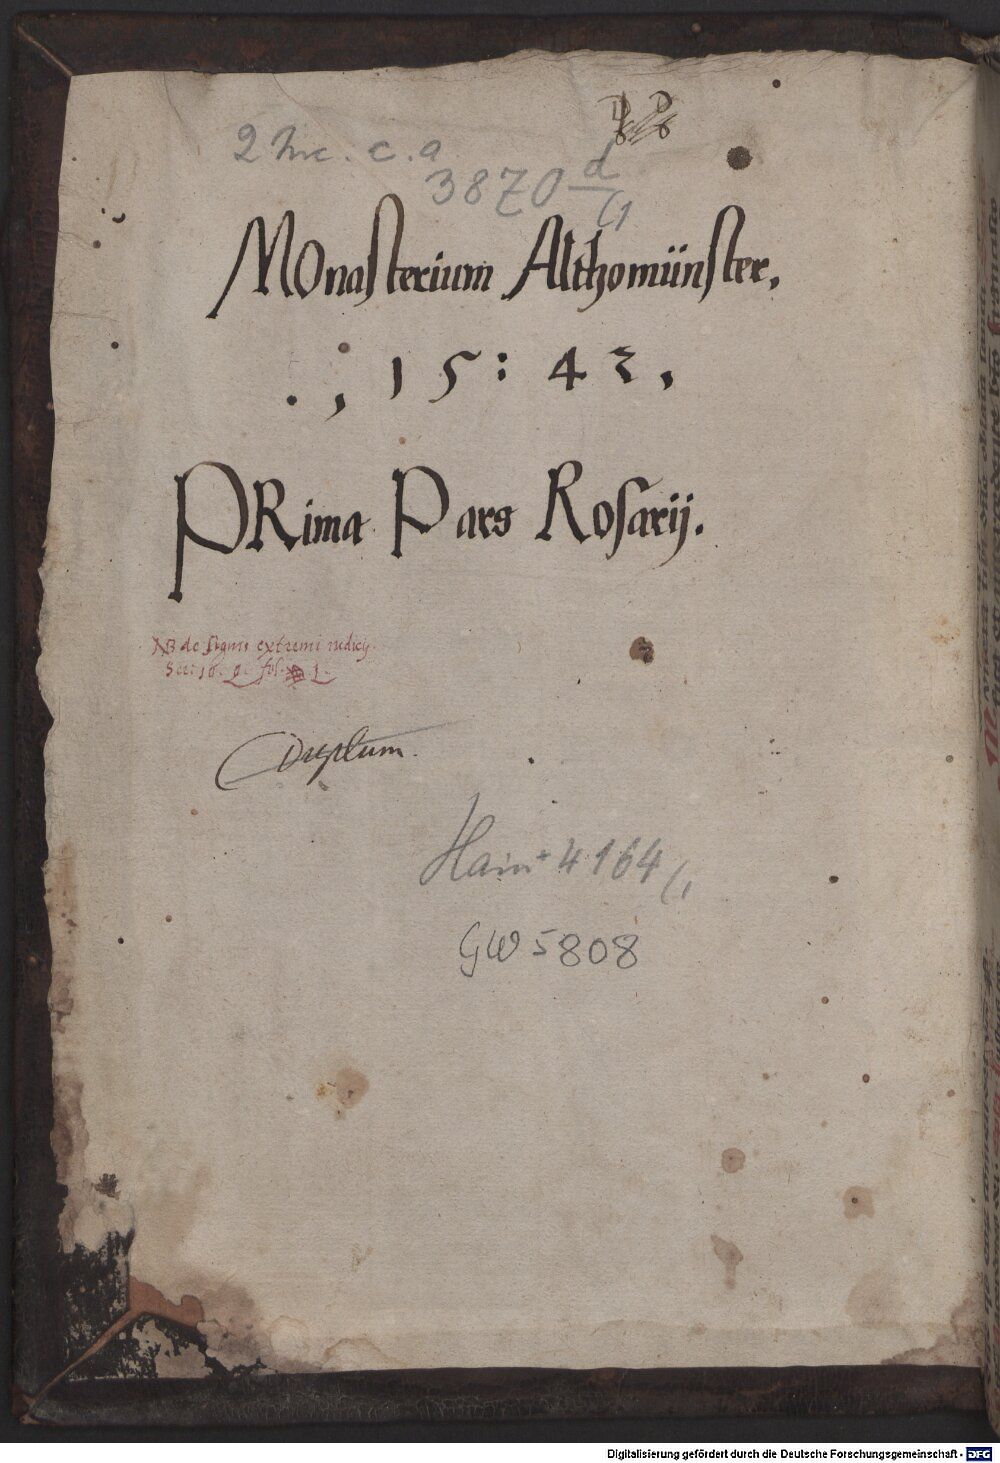 2 Inc. c. a
3870 d
(1
MOnasterium Althomünster.
., 15:43,
PRima Pars Rosarij.
NB de signis extremi iudicij
fol. 1.
Duplum.
Hain+ 4164 (1
GW 5808
Digitalisierung gefördert durch die Deutsche Forschungsgemeinschaft - DFG